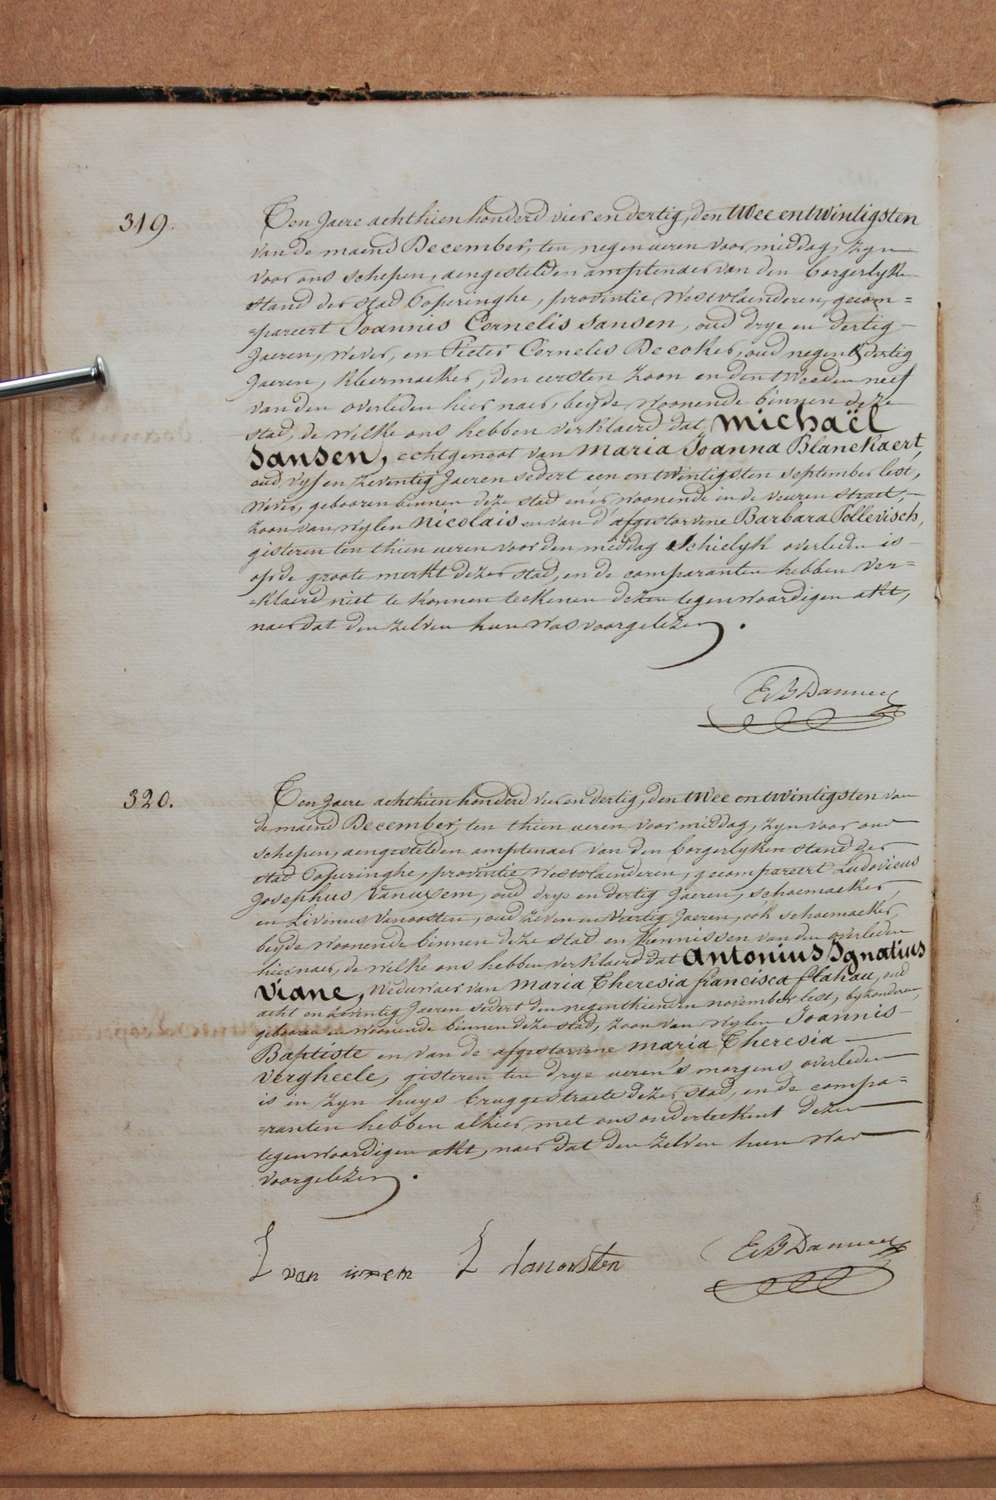 319.
Ten Jaere achthien honderd vier en dertig, den twee entwintigsten
van de maend December, ten negen ueren voor middag, zyn
voor ons schepen, aengestelden amptenaer van den borgerlyken
stand der stad Poperinghe, provintie Westvlaenderen, gecom=
=pareert Joannis Cornelis Sansen, oud drye en dertig
Jaeren, wever, en Pieter Cornelis Decoker, oud negen & dertig
Jaeren, kleermaeker, den eersten zoon en den tweeden neef
van den overleden hier naer, beyde woonende binnen deze
stad, de welke ons hebben verklaerd dat Michaël
Sansen, echtgenoot van Maria Joanna Blanckaert,
oud vyf en zeventig Jaeren sedert een en twintigsten september lest,
wever, gebooren binnen deze stad en er woonende in de veuren straet,
zoon van wylen Nicolais en van d'afgestorvene Barbara Pollevisch,
gisteren ten thien ueren voor den middag schielyk overleden is
op de groote merkt dezer stad, en de comparanten hebben ver=
=klaerd niet te konnen teekenen dezen tegenwoordigen akt,
naer dat den zelven hun was voorgelezen.
E B Dannee
320.
Ten Jaere achthien honderd vier en dertig, den twee entwintigsten van
de maend December, ten thien ueren voor middag, zyn voor ons
schepen, aengestelden amptenaer van den borgerlyken stand der
stad Poperinghe, provintie Westvlaenderen, gecompareert Ludovicus
Josephus Vanuxem, oud drye en dertig Jaeren, schoemaeker,
en Livinus Vanoosten, oud zeven en veertig Jaeren, ook schoemaeker,
beyde woonende binnen deze stad en kennissen van den overleden
hier naer, de welke ons hebben verklaerd dat Antonius Ignatius
Viane, weduwaer van Maria Theresia francisca flahau, oud
acht en zeventig Jaeren sedert den negenthienden november lest, byzonderen,
gebooren en woonende binnen deze stad, zoon van wylen Joannis
Baptiste en van de afgestorvene Maria Theresia
Vergheele, gisteren ten drye ueren 's morgens overleden
is in zyn huys bruggestraete dezer stad, en de compa=
=ranten hebben alhier, met ons onderteekent dezen
tegenwoordigen akt, naer dat den zelven hun was
voorgelezen.
L van uxem L Vanoosten E B Dannee